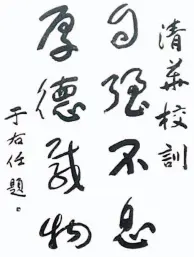 清華校訓
自強不息
厚德載物
于右任題。